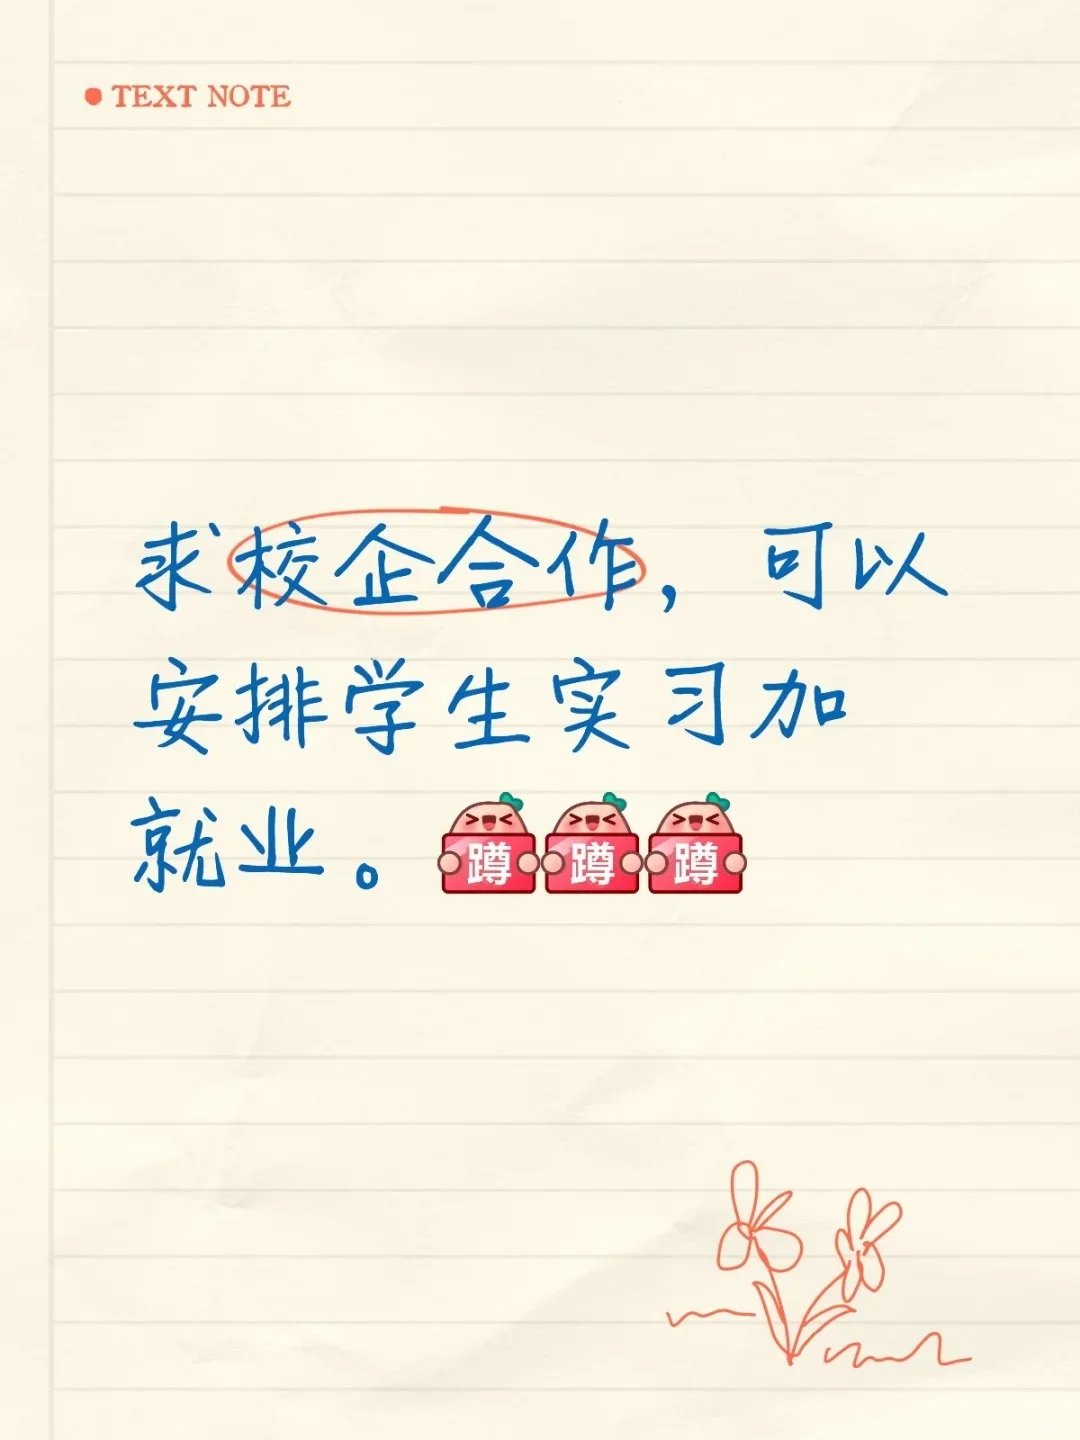 TEXT NOTE
求校企合作，可以
安排学生实习加
就业。蹲蹲蹲